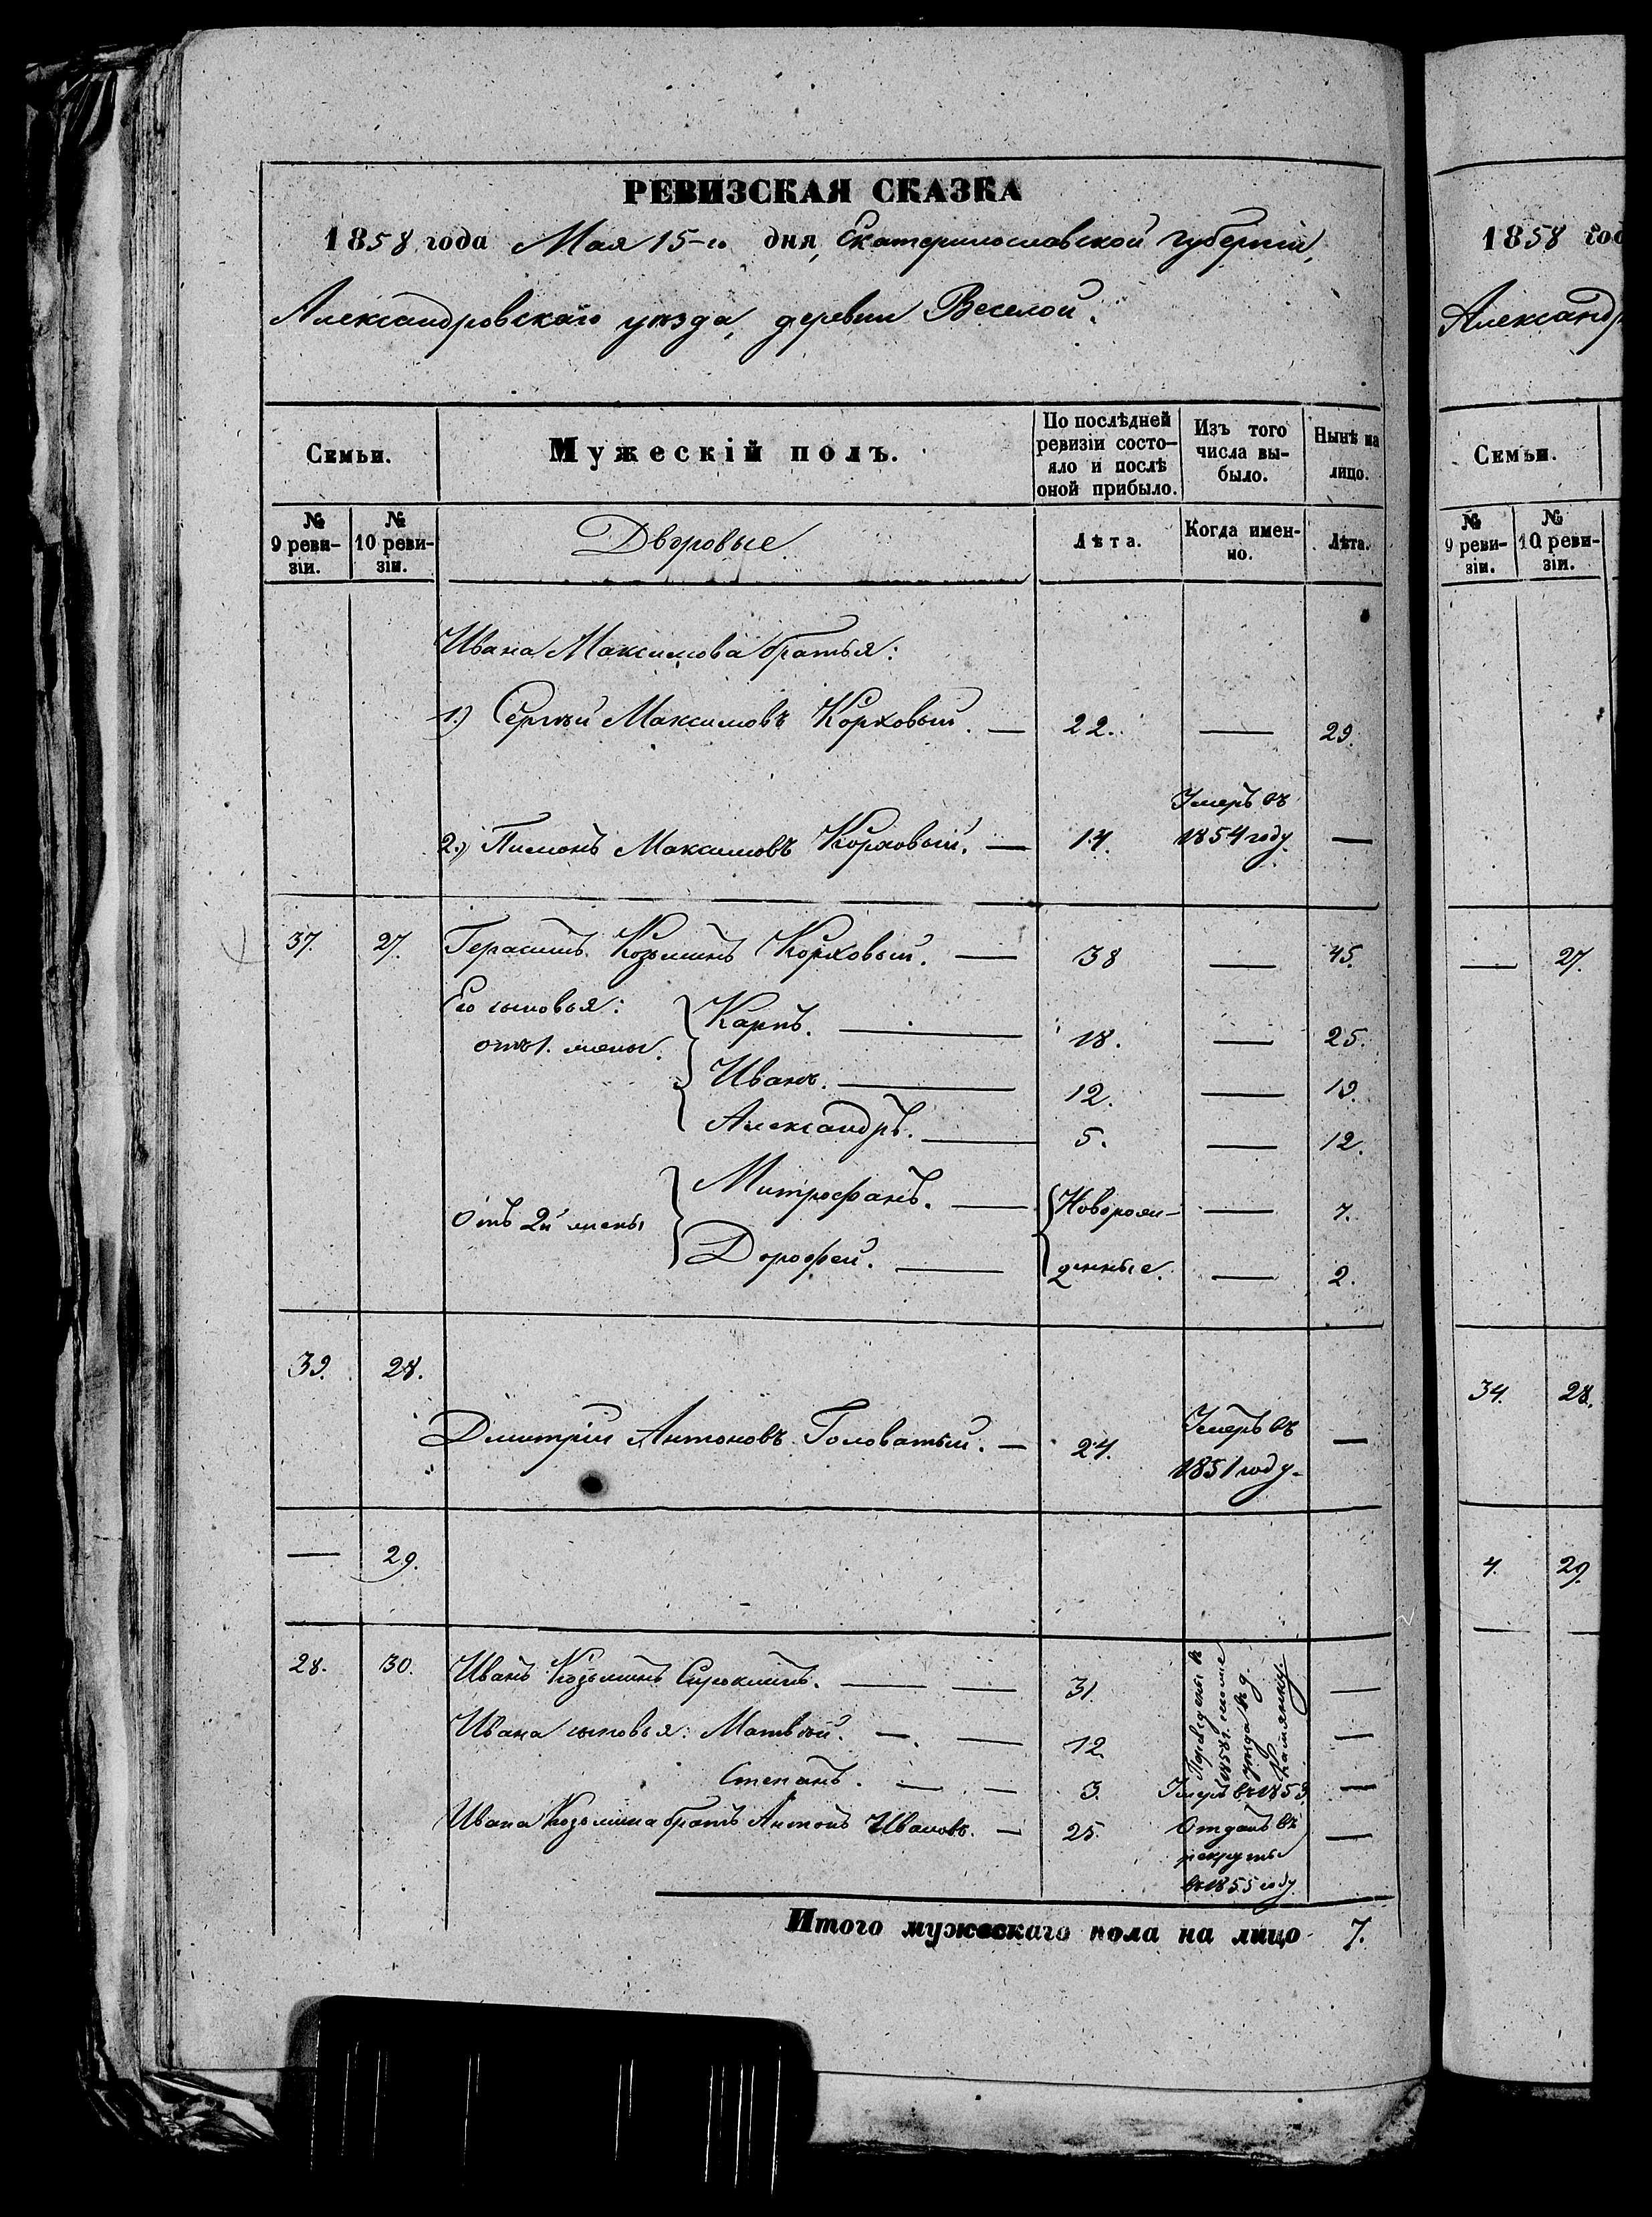 РЕВИЗСКАЯ СКАЗКА
1858 года Мая 15-го дня, Екатеринославской губерніи,
Александровскаго уѣзда, деревни Веселой.
Семьи.
Мужескій полъ.
По послѣдней ревизіи состо-
яло и послѣ оной прибыло.
Изъ того числа вы-
было.
Нынѣ на лицо.
№ 9 реви-
зіи.
№ 10 реви-
зіи.
Дворовые
Лѣта.
Когда имен-
но.
Лѣта.
Ивана Максимова братья:
1.) Сергѣй Максимовъ Корховый. — 22. — 29.
2.) Пимонъ Максимовъ Корховый. — 14. Умеръ въ 1854 году —
37. 27. Герасимъ Козьминъ Корховый. — 38 — 45.
Его сыновья:
отъ 1. жены. Карпъ. — 18. — 25.
Иванъ. — 12. — 19.
Александръ. — 5. — 12.
Отъ 2й жены Митрофанъ. — Новорож- — 7.
Дорофей. — денные. — 2.
39. 28.
Дмитрій Антоновъ Головатый. — 24. Умеръ въ 1851 году. —
— 29.
28. 30. Иванъ Козьминъ — — 31. —
Переведены въ 1858 г. уѣзда въ д. Камянку.
Ивана сыновья: Матвѣй. — — 12. —
Степанъ. — — 3. Умеръ въ 1853. —
Ивана Козьмина братъ Антонъ Ивановъ. — 25. Отданъ въ рекруты въ 1855 году —
Итого мужескаго пола на лицо 7.
1858 год
Александр
Семьи.
№ 9 реви-
зіи.
№ 10 реви-
зіи.
— 27.
34. 28.
4. 29.